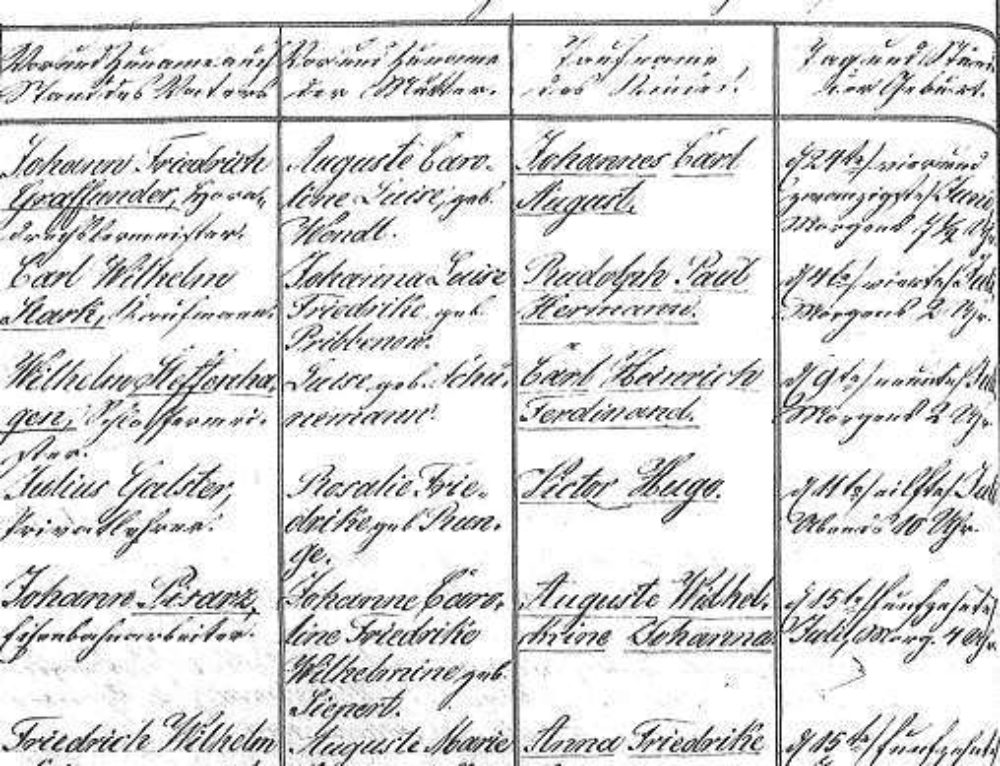 Vor und Zuname auch
Stand des Vaters
Vor und Zuname
der Mutter.
Taufname
des Kindes.
Tag und Stunde
der Geburt.
Johann Friedrich
Graffunder,
drechslermeister.
Auguste Caro-
line Luise, geb.
Wendt.
Johannes Carl
August.
d 24te/ vier und
zwanzigste/ Juni
Morgens
Carl Wilhelm
Stark, Kaufmann.
Johanna Luise
Friedrike geb.
Pribbenow.
Rudolph Paul
Hermann.
d 4te/ vierte/
Morgens 2 Uhr.
Wilhelm Steffenha-
gen, Schlossermei-
ster.
Luise, geb. Schü-
nemann.
Carl Heinrich
Ferdinand.
d 9te/ neunte/
Morgens 2 Uhr.
Julius Galster,
Privatlehrer.
Rosalie Frie-
drike geb. Run-
ge.
Victor Hugo.
d 11te/ eilfte/
Abends 10 Uhr.
Johann
Eisenbahnarbeiter.
Johanne Caro-
line Friedrike
Wilhelmine geb.
Siepert.
Auguste Wilhel-
mine Johanna
d 15te/ fünfzehnte/
Juli, Morg. 4 Uhr
Friedrich Wilhelm
Auguste Marie
Anna Friedrike
d 15te/ fünfzehnte/